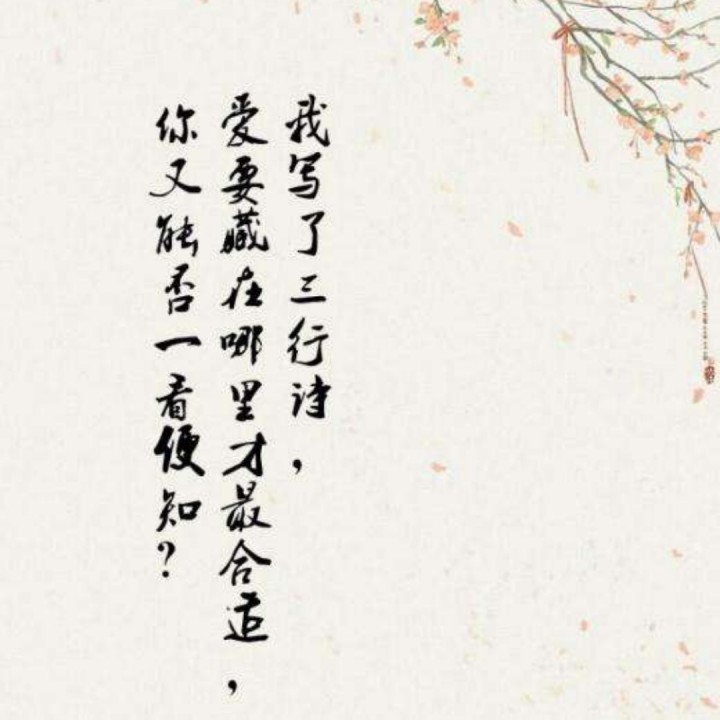 我写了三行诗，
爱要藏在哪里才最合适，
你又能否一看便知？